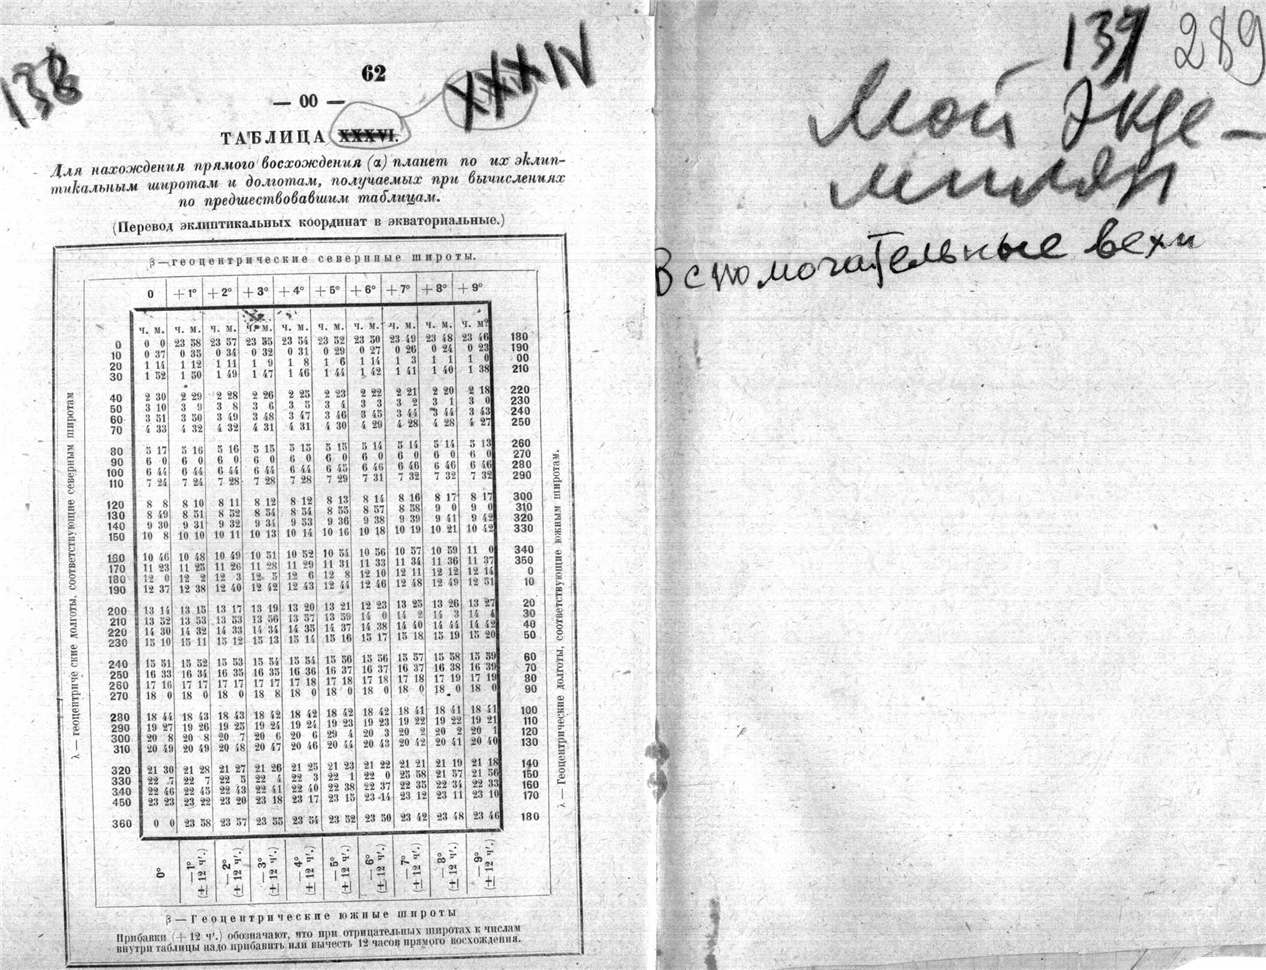 138
62
— 00 —
ТАБЛИЦА XXXVI.
XXXIV
Для нахождения прямого восхождения (α) планет по их эклип-
тикальным широтам и долготам, получаемых при вычислениях
по предшествовавшим таблицам.
(Перевод эклиптикальных координат в экваториальные.)
β—геоцентрические северные широты.
0 +1° +2° +3° +4° +5° +6° +7° +8° +9°
ч. м. ч. м. ч. м. ч. м. ч. м. ч. м. ч. м. ч. м. ч. м. ч. м.
0 0 0 23 58 23 57 23 55 23 54 23 52 23 50 23 49 23 48 23 46 180
10 0 37 0 35 0 34 0 32 0 31 0 29 0 27 0 26 0 24 0 23 190
20 1 14 1 12 1 11 1 9 1 8 1 6 1 14 1 3 1 1 1 0 00
30 1 52 1 50 1 49 1 47 1 46 1 44 1 42 1 41 1 40 1 38 210
40 2 30 2 29 2 28 2 26 2 25 2 23 2 22 2 21 2 20 2 18 220
50 3 10 3 9 3 8 3 6 3 5 3 4 3 3 3 2 3 1 3 0 230
60 3 51 3 50 3 49 3 48 3 47 3 46 3 45 3 44 3 44 3 43 240
70 4 33 4 32 4 32 4 31 4 31 4 30 4 29 4 28 4 28 4 27 250
80 5 17 5 16 5 16 5 15 5 15 5 15 5 14 5 14 5 14 5 13 260
90 6 0 6 0 6 0 6 0 6 0 6 0 6 0 6 0 6 0 6 0 270
100 6 44 6 44 6 44 6 44 6 44 6 45 6 46 6 46 6 46 6 46 280
110 7 24 7 24 7 28 7 28 7 28 7 29 7 31 7 32 7 32 7 32 290
120 8 8 8 10 8 11 8 12 8 12 8 13 8 14 8 16 8 17 8 17 300
130 8 49 8 51 8 52 8 54 8 54 8 55 8 57 8 58 9 0 9 0 310
140 9 30 9 31 9 32 9 34 9 53 9 36 9 38 9 39 9 41 9 42 320
150 10 8 10 10 10 11 10 13 10 14 10 16 10 18 10 19 10 21 10 42 330
160 10 46 10 48 10 49 10 51 10 52 10 54 10 56 10 57 10 59 11 0 340
170 11 23 11 25 11 26 11 28 11 29 11 31 11 33 11 34 11 36 11 37 350
180 12 0 12 2 12 3 12 5 12 6 12 8 12 10 12 11 12 12 12 14 0
190 12 37 12 38 12 40 12 42 12 43 12 44 12 46 12 48 12 49 12 51 10
200 13 14 13 15 13 17 13 19 13 20 13 21 12 23 13 25 13 26 13 27 20
210 13 52 13 53 13 53 13 56 13 57 13 59 14 0 14 2 14 3 14 4 30
220 14 30 14 32 14 33 14 34 14 35 14 37 14 38 14 40 14 44 14 42 40
230 15 10 15 11 15 12 15 13 15 14 15 16 15 17 15 18 15 19 15 20 50
240 15 51 15 52 15 53 15 54 15 54 15 56 15 56 15 57 15 58 15 59 60
250 16 33 16 34 16 35 16 35 16 36 16 37 16 37 16 37 16 38 16 39 70
260 17 16 17 17 17 17 17 17 17 18 17 18 17 18 17 18 17 19 17 19 80
270 18 0 18 0 18 0 18 8 18 0 18 0 18 0 18 0 18 0 18 0 90
280 18 44 18 43 18 43 18 42 18 42 18 42 18 42 18 41 18 41 18 41 100
290 19 27 19 26 19 25 19 24 19 24 19 23 19 23 19 22 19 22 19 21 110
300 20 8 20 8 20 7 20 6 20 6 29 4 20 3 20 2 20 2 20 1 120
310 20 49 20 49 20 48 20 47 20 46 20 44 20 43 20 42 20 41 20 40 130
320 21 30 21 28 21 27 21 26 21 25 21 23 21 22 21 21 21 19 21 18 140
330 22 7 22 7 22 5 22 4 22 3 22 1 22 0 25 58 21 57 21 56 150
340 22 46 22 45 22 43 22 41 22 40 22 38 22 37 22 35 22 34 22 33 160
450 23 23 23 22 23 20 23 18 23 17 23 15 23 14 23 12 23 11 23 10 170
360 0 0 23 58 23 57 23 55 23 54 23 52 23 50 23 42 23 48 23 46 180
0° —1° —2° —3° —4° —5° —6° —7° —8° —9°
(± 12 ч'.) (± 12 ч'.) (± 12 ч'.) (± 12 ч'.) (± 12 ч'.) (± 12 ч'.) (± 12 ч'.) (± 12 ч'.) (± 12 ч'.)
β — Геоцентрические южные широты
Прибавки (+ 12 ч'.) обозначают, что при отрицательных широтах к числам
внутри таблицы надо прибавить или вычесть 12 часов прямого восхождения.
λ — геоцентричеcкие долготы, соответствующие северным широтам
λ — Геоцентрические долготы, соответствующие южным широтам.
139 289
Мой экзе-
мпляр
Вспомогательные вехи